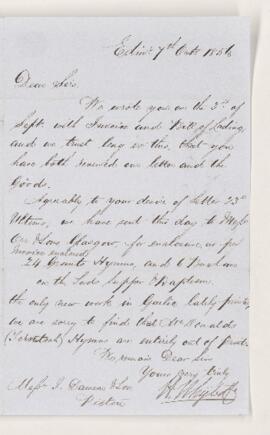 Edinr 7th Octr 1856
Dear Sirs
We wrote you on the 3rd of
Septr with Invoice and Bill of Lading
and we trust long ere this, that you
have both received our letter and the
Goods.
Agreeably to your desire of Letter 23rd
Ultimo, we have sent this day to Messrs
& Sons Glasgow, for enclosure, as per
Invoice enclosed
24 Grants Hymns, and 6
on the Lords Supper & Baptism.
the only new work in Gaelic lately printed,
we are sorry to find that McDonalds
Hymns are entirely out of Print.
We remain Dear Sirs
Yours very truly
Messrs J. Dawson & Son
Pictou